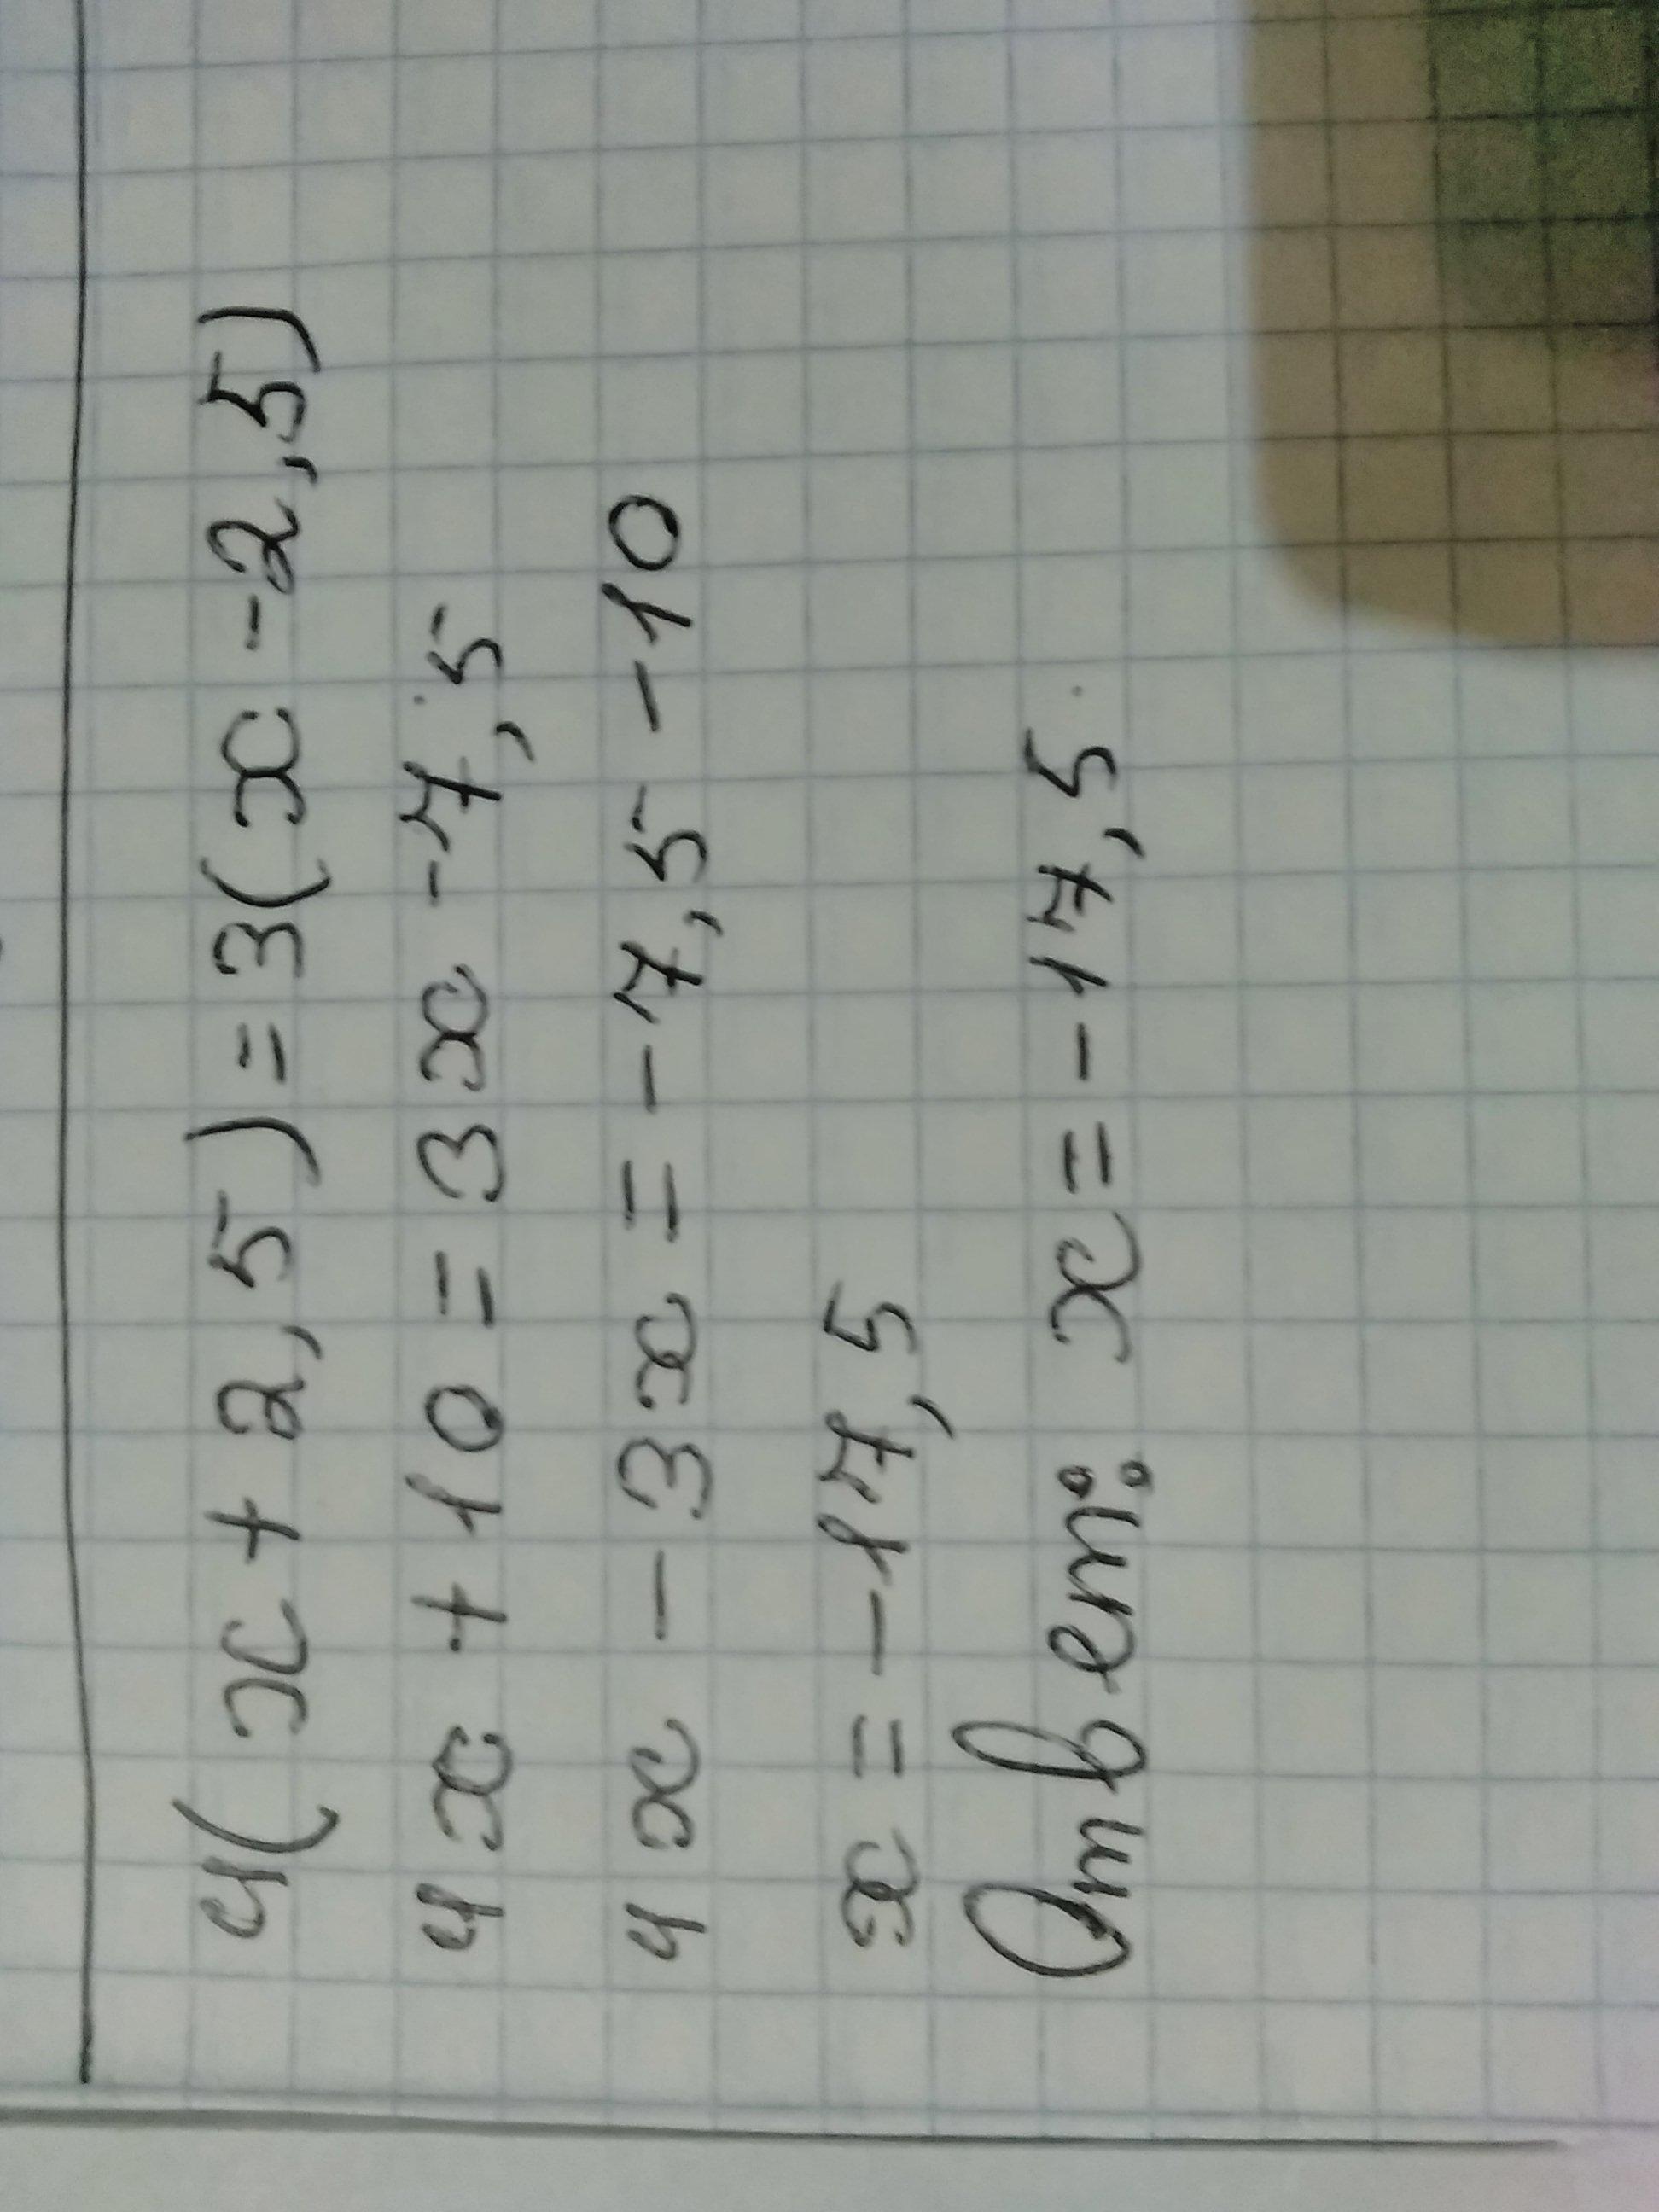 4(x+2,5)=3(x-2,5)
4x+10=3x-7,5
4x-3x=-7,5-10
x=-17,5
Ответ: x=-17,5